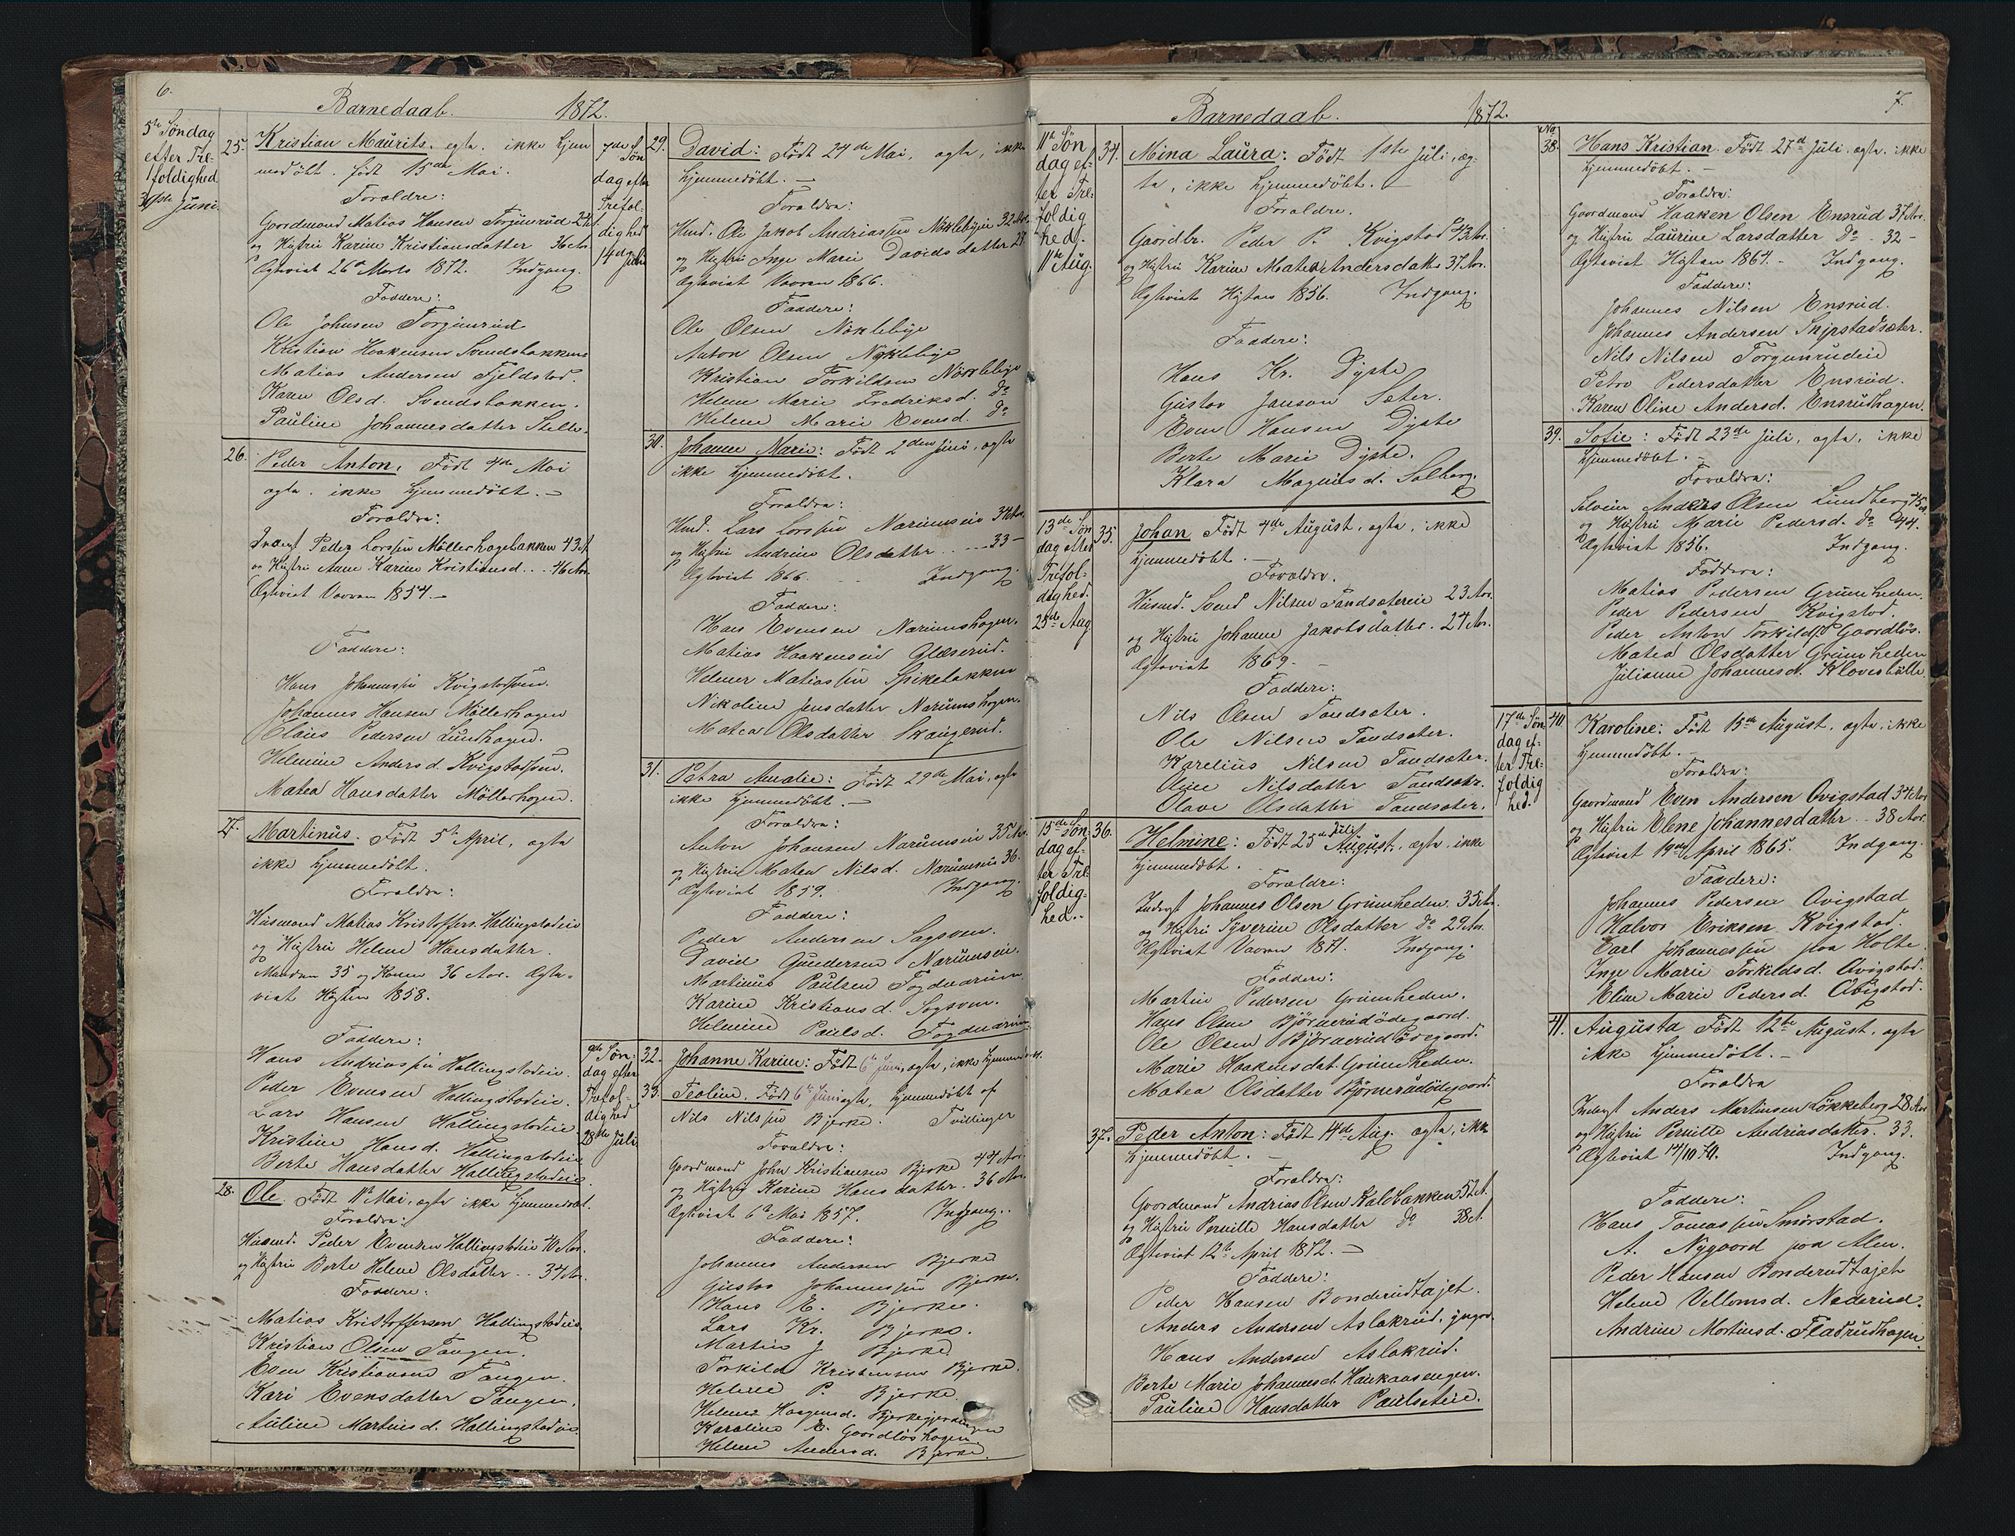 6.
Barnedaab. 1872.
5te Søndag
efter Tre-
foldighed
30te Juni.
25. Kristian Maurits, egte, ikke hjem
medøbt. født 15de Mai.
Foraldre:
Gaardmand Matias Hansen Torgunrud
og Hustru Karine Kristiansdatter 36 Aar.
Egteviet 26de Marts 1872. Indgang.
Faddere:
Ole Johnsen Torgunrud
Kristian Haakensen Svendsbakken
Matias Andersen Fjeldstad.
Karen Olsd. Svendsbakken.
Pauline Johannesdatter
26. Peder Anton, Født 4de Mai
egte, ikke hjemmedøbt. —
Foraldre:
Inderst Peder Larssen Møllerhagebakken 43 A.
og Hustru Anne Karine Kristiansd. .. 46 Aar.
Egteviet Vaaren 1854. —
Faddere:
Hans Johannessen
Johannes Hansen Møllerhagen
Claus Pedersen Lundhagen.
Helmine Andersd.
Matea Hansdatter Møllerhagen.
27. Martinus. Født 5te April, egte
ikke hjemmedøbt.
Foraldre:
Husmand Matias Kristoffers. Hallingstadeie
og Hustru Helene Hansdatter.
Manden 35 og Konen 36 Aar. Egte-
viet Høsten 1858.
Faddere:
Hans Andriassen Hallingstadeie.
Peder Evensen Hallingstadeie.
Lars Hansen Hallingstadeie
Kristine Hansd. Hallingstadeie
Berte Hansdatter Hallingstadeie.
28. Ole. Født Mai, egte ikke hjemmedøbt.
Foraldre:
Husmd. Peder Evensen Hallingstadeie 40 Aar.
og Hustru Berte Helene Olsdatter .. 34 Aar.
Faddere:
Matias Kristoffersen Hallingstadeie
Kristian Olsen Tangen.
Even Kristiansen Tangen.
Kari Evensdatter Tangen.
Auline Martinsd. Hallingstadeie
7de Søn
dag efter
Trefol-
dighed
14de Julie
29. David: Født 24de Mai, egte, ikke
hjemmedøbt. —
Foraldre:
Husmd. Ole Jakob Andriassen Nøklebyeie 32 Aar.
og Hustru Inge Marie Davidsdatter 27.
Egteviet Vaaren 1866.
Faddere:
Ole Olsen Nøklebye
Anton Olsen Nøklebye
Kristian Torkildsen Nøklebye
Helene Marie Fredriksd. Do
Helene Marie Evensd. Do
30. Johanne Marie: Født 2den Juni, egte
ikke hjemmedøbt.
Foraldre:
Husmd. Lars Larssen Narumseie 34 Aar.
og Hustru Andrine Olsdatter .. .. 33 —
Egteviet 1866 .. Indgang.
Faddere:
Hans Evensen Narumshagen.
Matias Haakensen Glæserud.
Helmer Matiassen Spikebakken
Nikoline Jensdatter Narumshagen.
Matea Olsdatter Skaugerud.
31. Petra Amalie: Født 29de Mai, egte
ikke hjemmedøbt. —
Foraldre:
Anton Johansen Narumseie 35 Aar.
og Hustru Matea Nilsd. Narumseie 36.
Egteviet 1859. Indgang.
Faddere:
Peder Andersen Sagvom.
David Gundersen Narumseie.
Martinus Paulsen Fogdnarum
Karine Kristiansd. Sogvom.
Helmine Paulsd. Fogdnarum
9de Søn-
dag efter
Trefol-
dighed
28de Juli.
32. Johanne Karine: Født 6te Juni, egte, ikke hjemmedøbt.
33. Teoline. Født 6te Juni egte, hjemmedøbt af
Nils Nilssen Bjerke. Tvillinger
Foraldre:
Gaardmand John Kristiansen Bjerke 44 Aar.
og Hustru Karine Hansdatter. 36 Aar.
Egteviet 6te Mai 1857. Indgang.
Faddere:
Johannes Andersen Bjerke
Gustav Johannessen Bjerke.
Hans E. Bjerke.
Lars Kr. Bjerke.
Martin J. Bjerke
Torkild Kristensen Bjerke.
Helene P. Bjerke
Helene Haagensd. Bjerkegjerdingen
Karoline E. Gaardløshagen
Helene Andersd. Bjerke
7.
Barnedaab. 1872.
11te Søn
dag ef-
ter Tre-
foldig
hed.
11te Aug.
34. Mina Laura: Født 1ste Juli, eg-
te, ikke hjemmedøbt. —
Foraldre.
Gaardbr. Peder P. Kvigstad 43 Aar.
og Hustru Karine Matea Andersdatter 37 Aar.
Egteviet Høsten 1856. Indgang.
Faddere:
Hans Kr. Dyste
Gustav Janson Sæter.
Even Hansen Dyste
Berte Marie Dyste.
Klara Magnusd. Solberg.
13de Søn
dag efter
Trefol-
dighed.
25de Aug.
35. Johan Født 4de August, egte, ikke
hjemmedøbt. —
Foraldre.
Husmd. Svend Nilsen Tandsætereie 23 Aar.
og Hustru Johanne Jakobsdatter. 27 Aar.
Egteviet 1869. —
Faddere:
Nils Olsen Tandsæter.
Ole Nilsen Tandsæter.
Karelius Nilsen Tandsæter.
Oline Nilsdatter Tandsæter.
Olave Olsdatter Tandsæter.
15de Søn
dag ef-
ter Tre-
foldig-
hed.
36. Helmine: Født 25de Juli August, egte, ikke
hjemmedøbt.
Foraldre:
Inderst Johannes Olsen Grumheden. 35 Aar.
og Hustru Syverine Olsdatter do 29 Aar.
Egteviet Vaaren 1871. Indgang.
Faddere:
Martin Pedersen Grumheden.
Hans Olsen Bjørnerudødegaard.
Ole Olsen Bjørnerudødegaard.
Marie Haakensdat. Grumheden.
Matea Olsdatter Bjørnerudødegaard.
37. Peder Anton: Født 14de Aug. egte, ikke
hjemmedøbt. —
Foraldre:
Gaardmand Andrias Olsen Kalvbakken 52 A.
og Hustru Pernille Hansdatter do 38 A.
Egteviet 12te April 1872. —
Faddere:
Peder Hansen Bonderudtajet.
Anders Andersen Aslakrud, yngre.
Hans Andersen Aslakrud.
Berte Marie Johannesd.
Pauline Hansdatter Paulseteie.
No
38. Hans Kristian. Født 27de Juli. egte. ikke
hjemmedøbt.
Foraldre:
Gaardmand Haaken Olsen Ensrud 37 Aar.
og Hustru Laurine Larsdatter do - 32 —
Egteviet Høsten 1864. — Indgang.
Faddere:
Johannes Nilsen Ensrud.
Johannes Andersen Skjestadsæter.
Nils Nilsen Torgunrudeie
Petro Pedersdatter Ensrud.
Karen Oline Andersd. Ensrudhagen.
39. Sofie: Født 23de Juli, egte, ikke
hjemmedøbt. —
Foraldre:
Selveier Anders Olsen Lundberg 45 Aar
og Hustru Marie Pedersd. do 44.
Egteviet 1856. Indgang.
Faddere:
Matias Pedersen Grumheden.
Peder Pedersen Kvigstad.
Peder Anton Torkilds. Gaardløs.
Matea Olsdatter Grumheden
Julianne Johannesd. Klovesbølle.
17de Søn
dag ef-
ter Tre-
foldig
hed.
40. Karoline: Født 15de August, egte, ikke
hjemmedøbt. —
Foraldre:
Gaardmand Even Andersen Qvigstad 34 Aar
og Hustru Elene Johannesdatter .. 38 Aar.
Egteviet 19de April 1865. Indgang.
Faddere:
Johannes Pedersen Qvigstad
Halvor Eriksen Kvigstad.
Carl Johannessen paa Holte.
Inge Marie Torkildsd. Qvigstad.
Eline Marie Pedersd. Qvigstad.
41. Augusta Født 12te August, egte
ikke hjemmedøbt. —
Foraldre
Inderst Anders Martinsen Løkkeberg 28 Aar
og Hustru Pernille Andriasdatter. 33.
Egteviet 14/10 71. Indgang.
Faddere:
Hans Tomassen Smørstad.
A. Nygaard paa Alm.
Peder Hansen Bonderudtajet
Helene Vellomsd. Nederud.
Andrine Mortinsd. Fladrudhagen